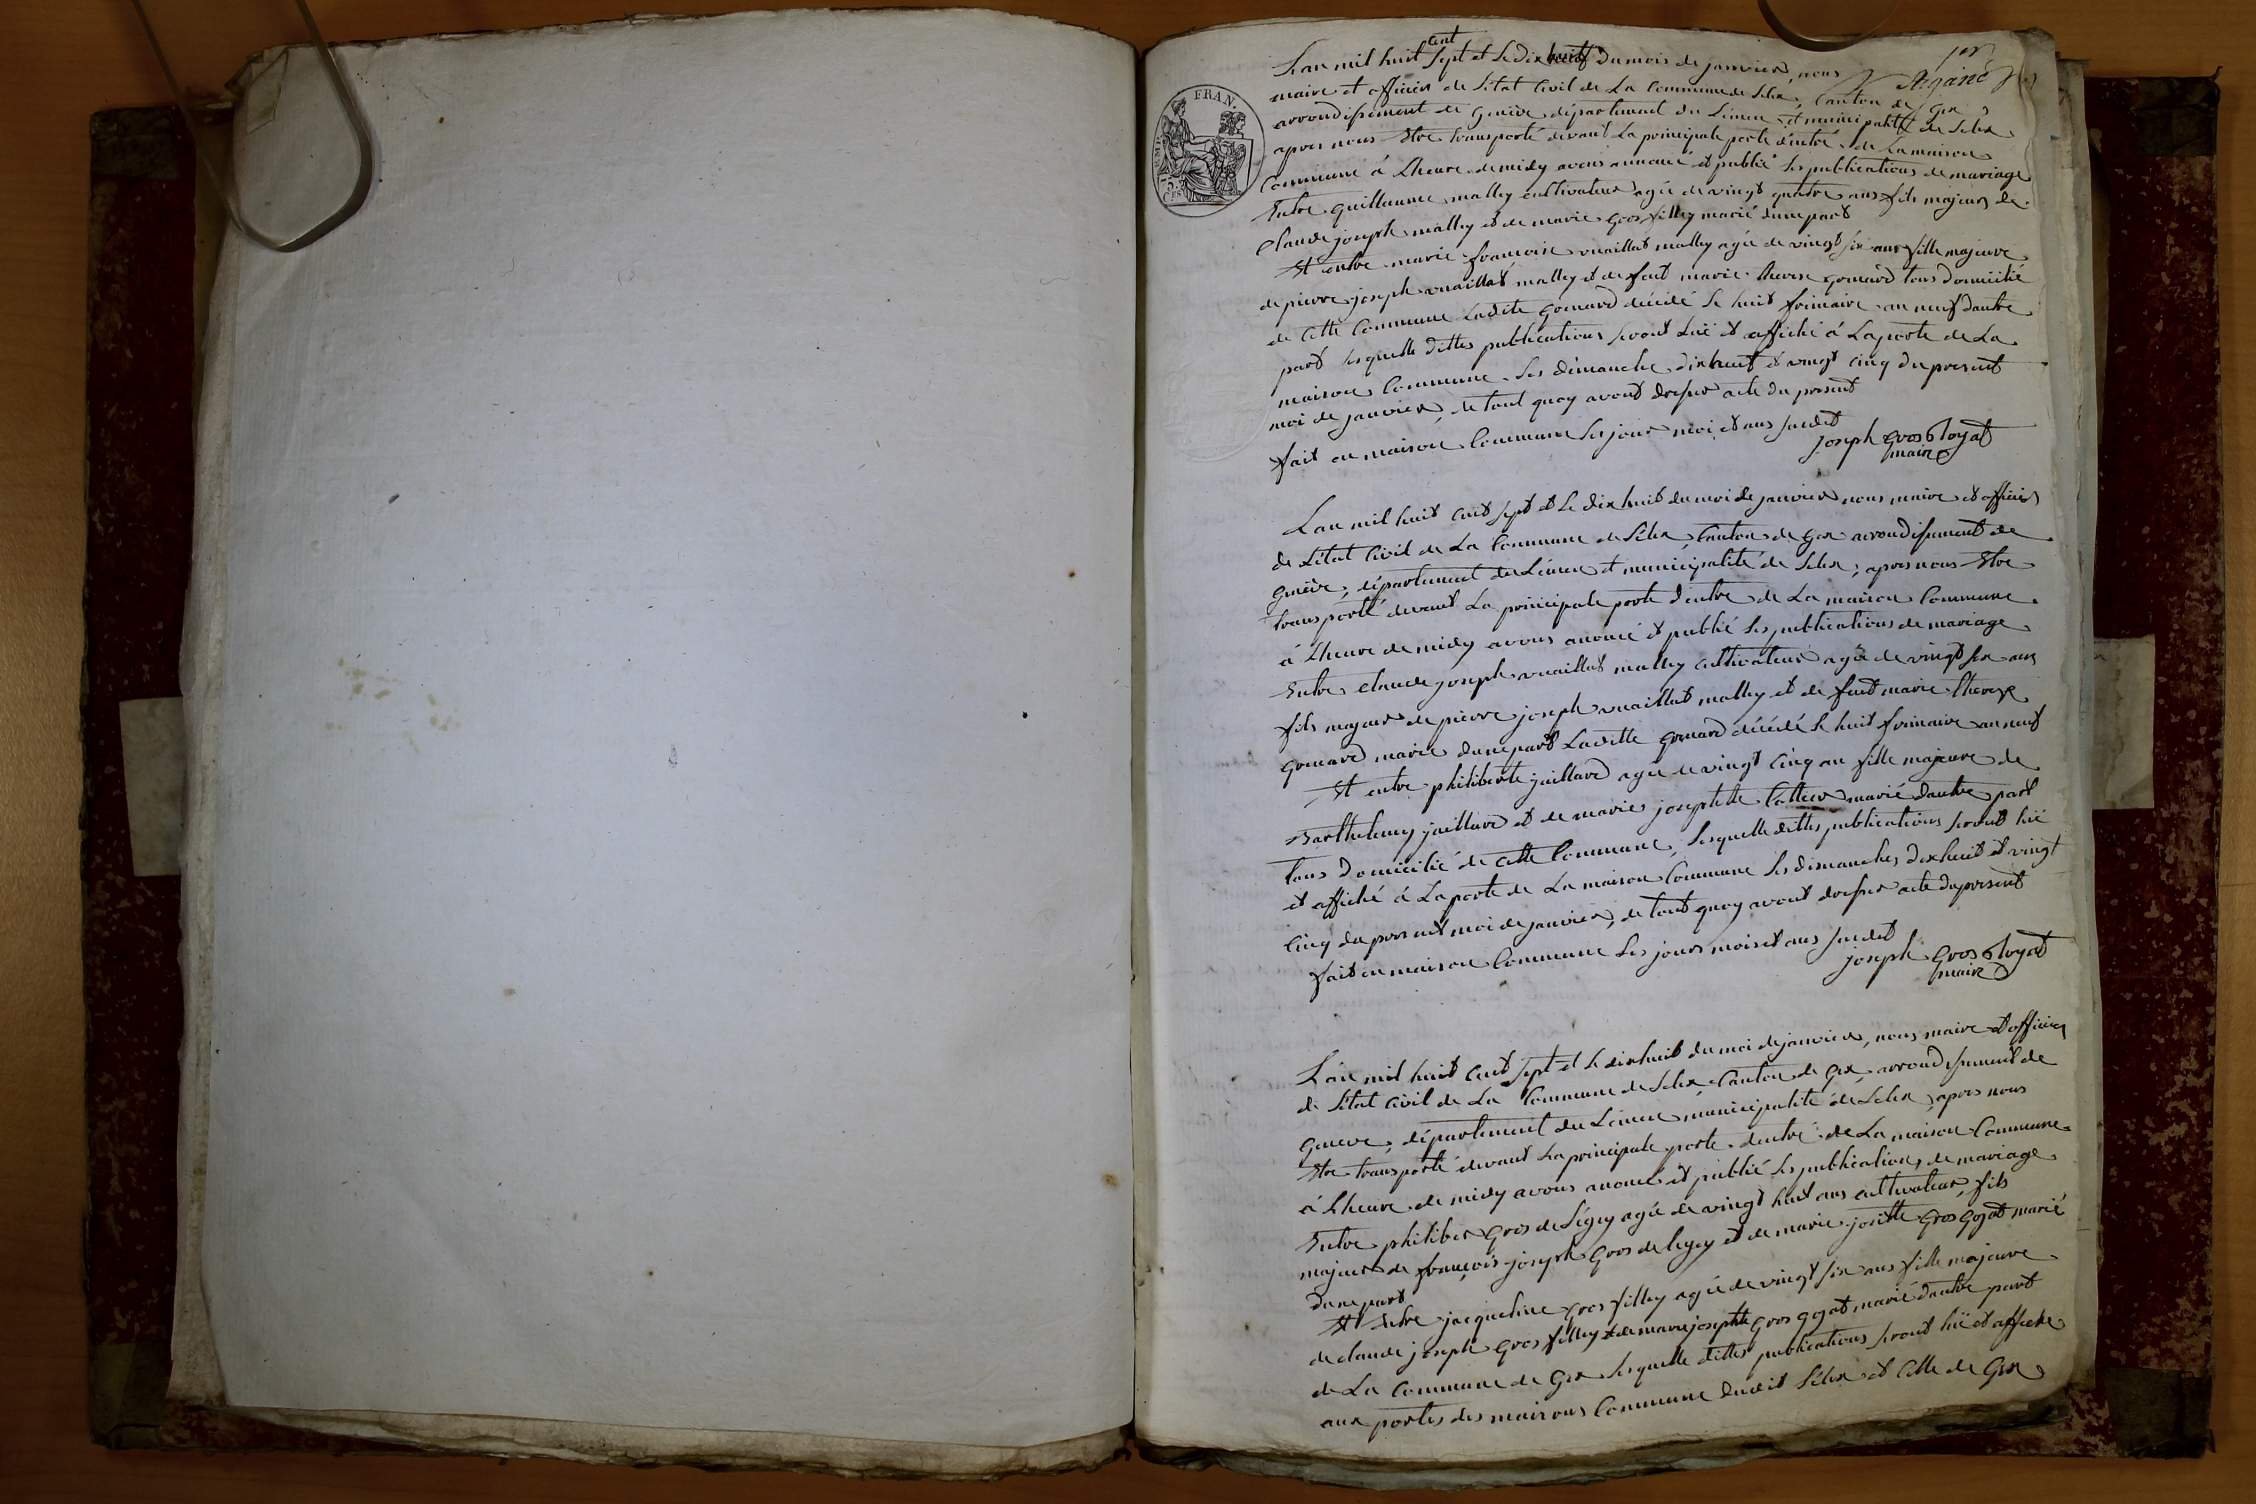 L'an mil huit cent sept et le dix huit du mois de janvier, nous
maire et officier de l'état Civil de La Commune de Lelex, Canton de Gex
arrondissement de Genève département du Léman, et municipalité de Lelex
apres nous Etre transporté devant La principale porte d'entré de La maison
Commune á Lheure de midy avons annoncé et publié les publications de mariage
Entre guillaume malley cultivateur agée de vingt quatre ans fils majeur de
Claude joseph malley et de marie gros filley marié dune part
Et entre marie françoise vuaillat malley agée de vingt six ans fille majeure
de pierre joseph vuaillat malley et de feut marie therese gomard tous domicilié
de Cette Commune Ladite gomard décédé le huit frimaire an neuf dautre
part lesquelle dittes publications seront Luë et affiché á La porte de La
maison Commune les dimanche dixhuit et vingt cinq du present
moi de janvier, de tout quoy avont dresser acte du present
fait en maison Commune les jour moi et ans susdit
joseph gros Royat
maire
FRAN.
L'an mil huit cent sept et le dix huit du moi de janvier nous maire et officier
de L'état Civil de La Commune de Lélex, Canton de Gex arrondissement de
Genève, département du Léman et municipalité de Lelex, apres nous Etre
transporté devant La principale porte d'entre de La maison Commune
á Lheure de midy avons anoncé et publié les publications de mariage
Entre claude joseph vuaillat malley cultivateur agée de vingt six ans
fils majeur de pierre joseph vuaillat malley et de feut marie therese
gomard marié dune part Laditte gomard décédé le huit frimaire an neuf
Et entre philiberte jaillard agée de vingt Cinq an fille majeure de
Barthelemy jaillard et de marie josephte marié dautre part
tous domicilié de Cette Commune, lesquelle dittes publications seront luë
et affiché á La porte de La maison Commune les dimanches dixhuit et vingt
Cinq du present moi de janvier, de tout quoy avont dresser acte du present
fait en maison Commune les jours mois et ans susdit
joseph gros Royat
maire
L'an mil huit cent sept et le dixhuit du moi de janvier, nous maire et officier
de L'état Civil de La Commune de Lelex Canton de Gex, arrondissement de
Geneve, département du Léman municipalité de Lelex, apres nous
Etre transporté devant La principale porte d'entré de La maison Commune
á Lheure de midy avons anoncé et publié les publications de mariage
Entre philiber gros de Légey agée de vingt huit ans cultivateur, fils
majeur de françois joseph gros de legey et de marie josette gros gojat marié
dune part
Et Entre jacqueline gros filley agée de vingt six ans fille majeure
de claude joseph gros filley et de marie josephte gros gojat marié dautre part
de La Commune de Gex lesquelle dittes publications seront luë et affiche
aux portes des maisons Commune dudit Lélex et Celle de Gex